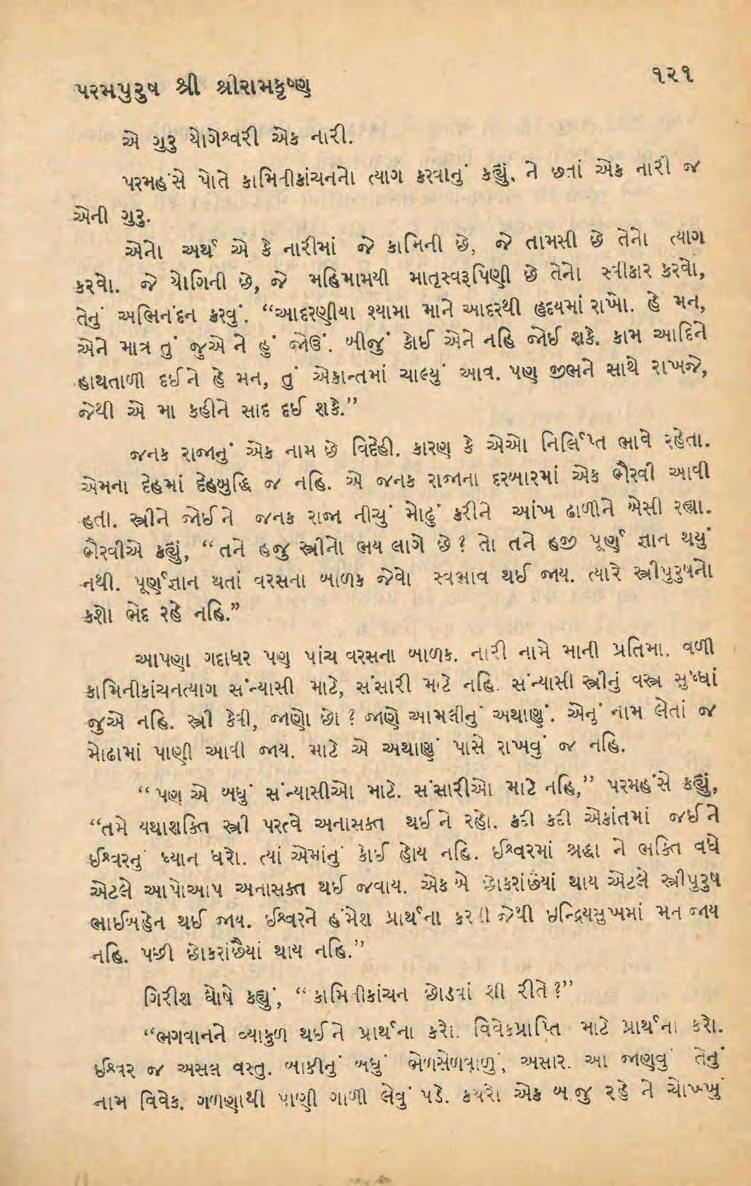 પરમપુરુષ શ્રી શ્રીરામકૃષ્ણ
૧૨૧
એ ગુરુ યોગેશ્વરી એક નારી.
પરમહંસે પોતે કામિનીકાંચનનો ત્યાગ કરવાનું કહ્યું. ને છતાં એક નારી જ
એની ગુરુ.
એનો અર્થ એ કે નારીમાં જે કામિની છે, જે તામસી છે તેનો ત્યાગ
કરવો. જે યોગિની છે, જે મહિમામયી માતૃસ્વરૂપિણી છે તેનો સ્વીકાર કરવો,
તેનું અભિનંદન કરવું. “આદરણીયા શ્યામા માને આદરથી હૃદયમાં રાખો. હે મન,
એને માત્ર તું જુએ ને હું જોઉં. બીજું કોઈ એને નહિ જોઈ શકે. કામ આદિને
હાથતાળી દઈને હે મન, તું એકાન્તમાં ચાલ્યું આવ. પણ જીભને સાથે રાખજે,
જેથી એ મા કહીને સાદ દઈ શકે.”
જનક રાજાનું એક નામ છે વિદેહી. કારણ કે એઓ નિર્લિપ્ત ભાવે રહેતા.
એમના દેહમાં દેહબુદ્ધિ જ નહિ. એ જનક રાજાના દરબારમાં એક ભૈરવી આવી
હતી. સ્ત્રીને જોઈને જનક રાજા નીચું મોઢું કરીને આંખ ઢાળીને બેસી રહ્યા.
ભૈરવીએ કહ્યું, “તને હજુ સ્ત્રીનો ભય લાગે છે ? તો તને હજી પૂર્ણ જ્ઞાન થયું
નથી. પૂર્ણજ્ઞાન થતાં વરસના બાળક જેવો સ્વભાવ થઈ જાય. ત્યારે સ્ત્રીપુરુષનો
કશો ભેદ રહે નહિ.”
આપણા ગદાધર પણ પાંચ વરસના બાળક. નારી નામે માની પ્રતિમા. વળી
કામિનીકાંચનત્યાગ સંન્યાસી માટે, સંસારી માટે નહિ. સંન્યાસી સ્ત્રીનું વસ્ત્ર સુધ્ધાં
જુએ નહિ. સ્ત્રી કેવી, જાણો છો ? જાણે આમલીનું અથાણું. એનું નામ લેતાં જ
મોઢામાં પાણી આવી જાય. માટે એ અથાણું પાસે રાખવું જ નહિ.
“પણ એ બધું સંન્યાસીઓ માટે. સંસારીઓ માટે નહિ,” પરમહંસે કહ્યું,
“તમે યથાશક્તિ સ્ત્રી પરત્વે અનાસક્ત થઈને રહો. કદી કદી એકાંતમાં જઈને
ઈશ્વરનું ધ્યાન ધરો. ત્યાં એમાંનું કોઈ હોય નહિ. ઈશ્વરમાં શ્રદ્ધા ને ભક્તિ વધે
એટલે આપોઆપ અનાસક્ત થઈ જવાય. એક બે છોકરાંછૈયાં થાય એટલે સ્ત્રીપુરુષ
ભાઈબહેન થઈ જાય. ઈશ્વરને હંમેશ પ્રાર્થના કરવી જેથી ઇન્દ્રિયસુખમાં મન જાય
નહિ. પછી છોકરાંછૈયાં થાય નહિ.”
ગિરીશ ઘોષે કહ્યું, “કામિનીકાંચન છોડવાં શી રીતે ?”
“ભગવાનને વ્યાકુળ થઈને પ્રાર્થના કરો. વિવેકપ્રાપ્તિ માટે પ્રાર્થના કરો.
ઈશ્વર જ અસલ વસ્તુ. બાકીનું બધું ભેળસેળવાળું, અસાર. આ જાણવું તેનું
નામ વિવેક. ગળણાથી પાણી ગાળી લેવું પડે. કચરો એક બાજુ રહે ને ચોખ્ખું